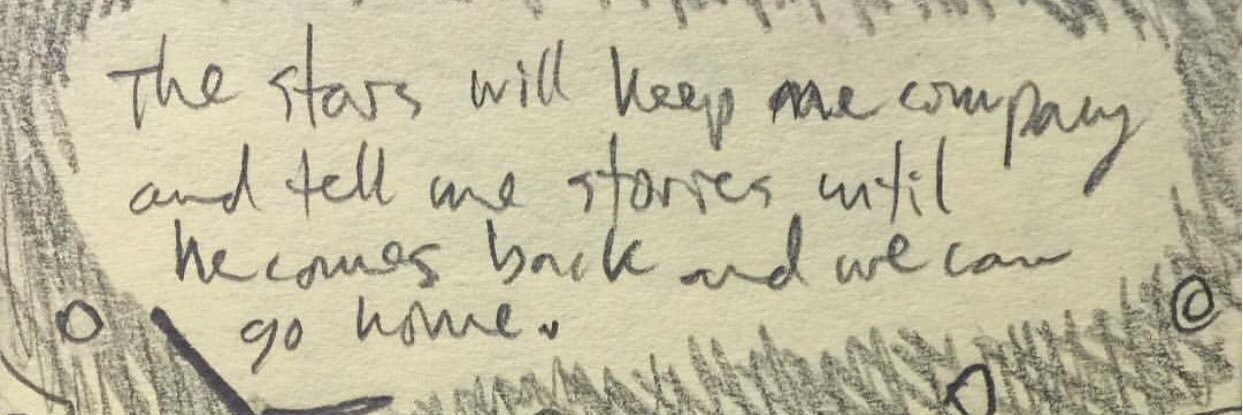 The stars will keep me company
and tell me stories until
he comes back and we can
go home.